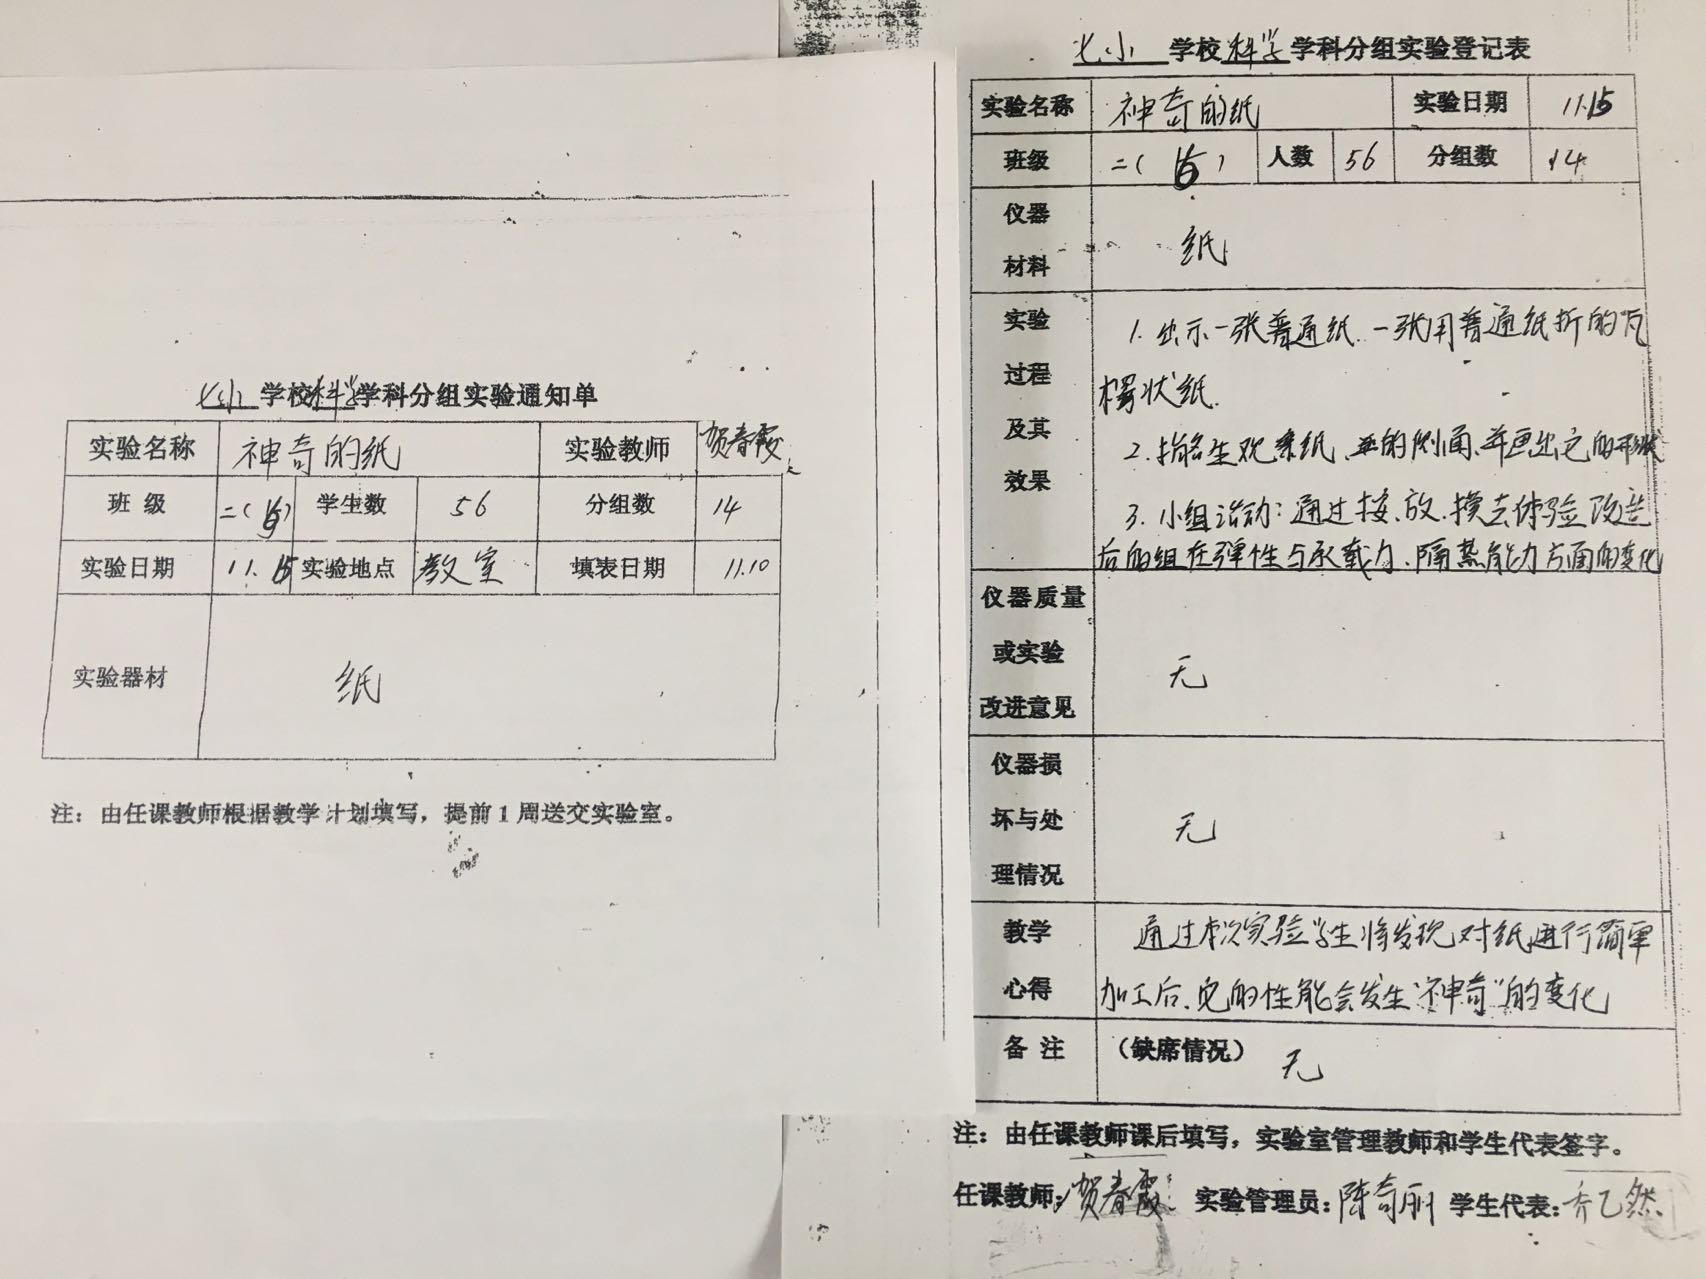 七小 学校科学学科分组实验通知单
实验名称 神奇的纸 实验教师 贺春霞
班 级 二( ) 学生数 56 分组数 14
实验日期 11.15 实验地点 教室 填表日期 11.10
实验器材 纸
注：由任课教师根据教学计划填写，提前1周送交实验室。
七小 学校科学学科分组实验登记表
实验名称 神奇的纸 实验日期 11.15
班级 二( ) 人数 56 分组数 14
仪器
材料
纸
实验
过程
及其
效果
1. 出示一张普通纸.一张用普通纸折的瓦
楞状纸.
2. 指名生观察纸 的侧面,并画出它的形状
3. 小组活动：通过按、放、摸去体验改造
后的纸在弹性与承载力、隔热能力方面的变化
仪器质量
或实验
改进意见
无
仪器损
坏与处
理情况
无
教学
心得
通过本次实验学生将发现对纸进行简单
加工后、它的性能会发生"神奇"的变化
备 注 （缺席情况） 无
注：由任课教师课后填写，实验室管理教师和学生代表签字。
任课教师：贺春霞 实验管理员：陈奇丽 学生代表：乔乙然